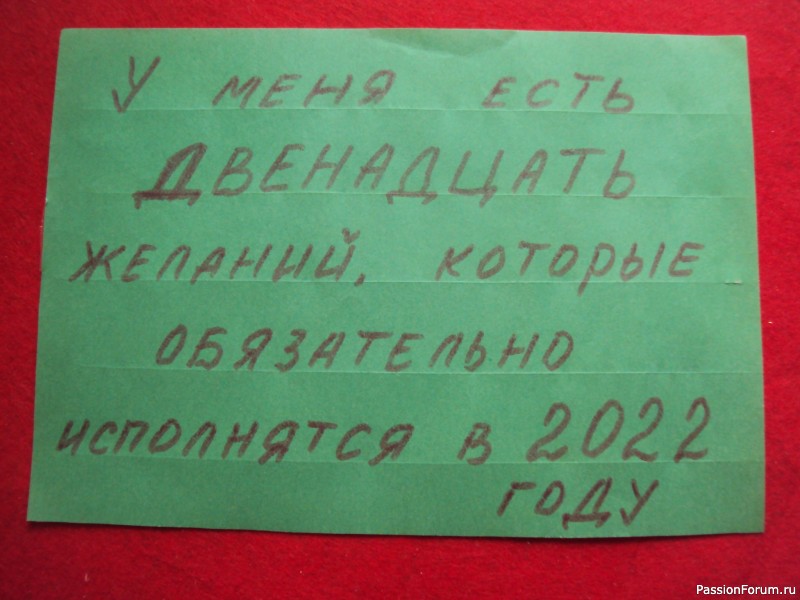 У МЕНЯ ЕСТЬ
ДВЕНАДЦАТЬ
ЖЕЛАНИЙ, КОТОРЫЕ
ОБЯЗАТЕЛЬНО
ИСПОЛНЯТСЯ В 2022
ГОДУ
PassionForum.ru